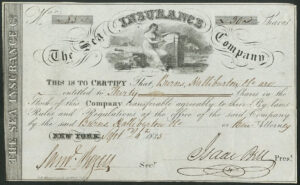 No. 55
30 Shares
INSURANCE
The Sea Company
THE SEA INSURANCE Co
THIS IS TO CERTIFY That Burns, Halliburton & Co are
entitled to Thirty Shares in the
Stock of this Company transferable agreeably to their By-laws
Rules and Regulations at the office of the said Company
by the said Burns Halliburton & Co or their Attorney
NEW YORK, 1835
Secy.
Isaac Pres